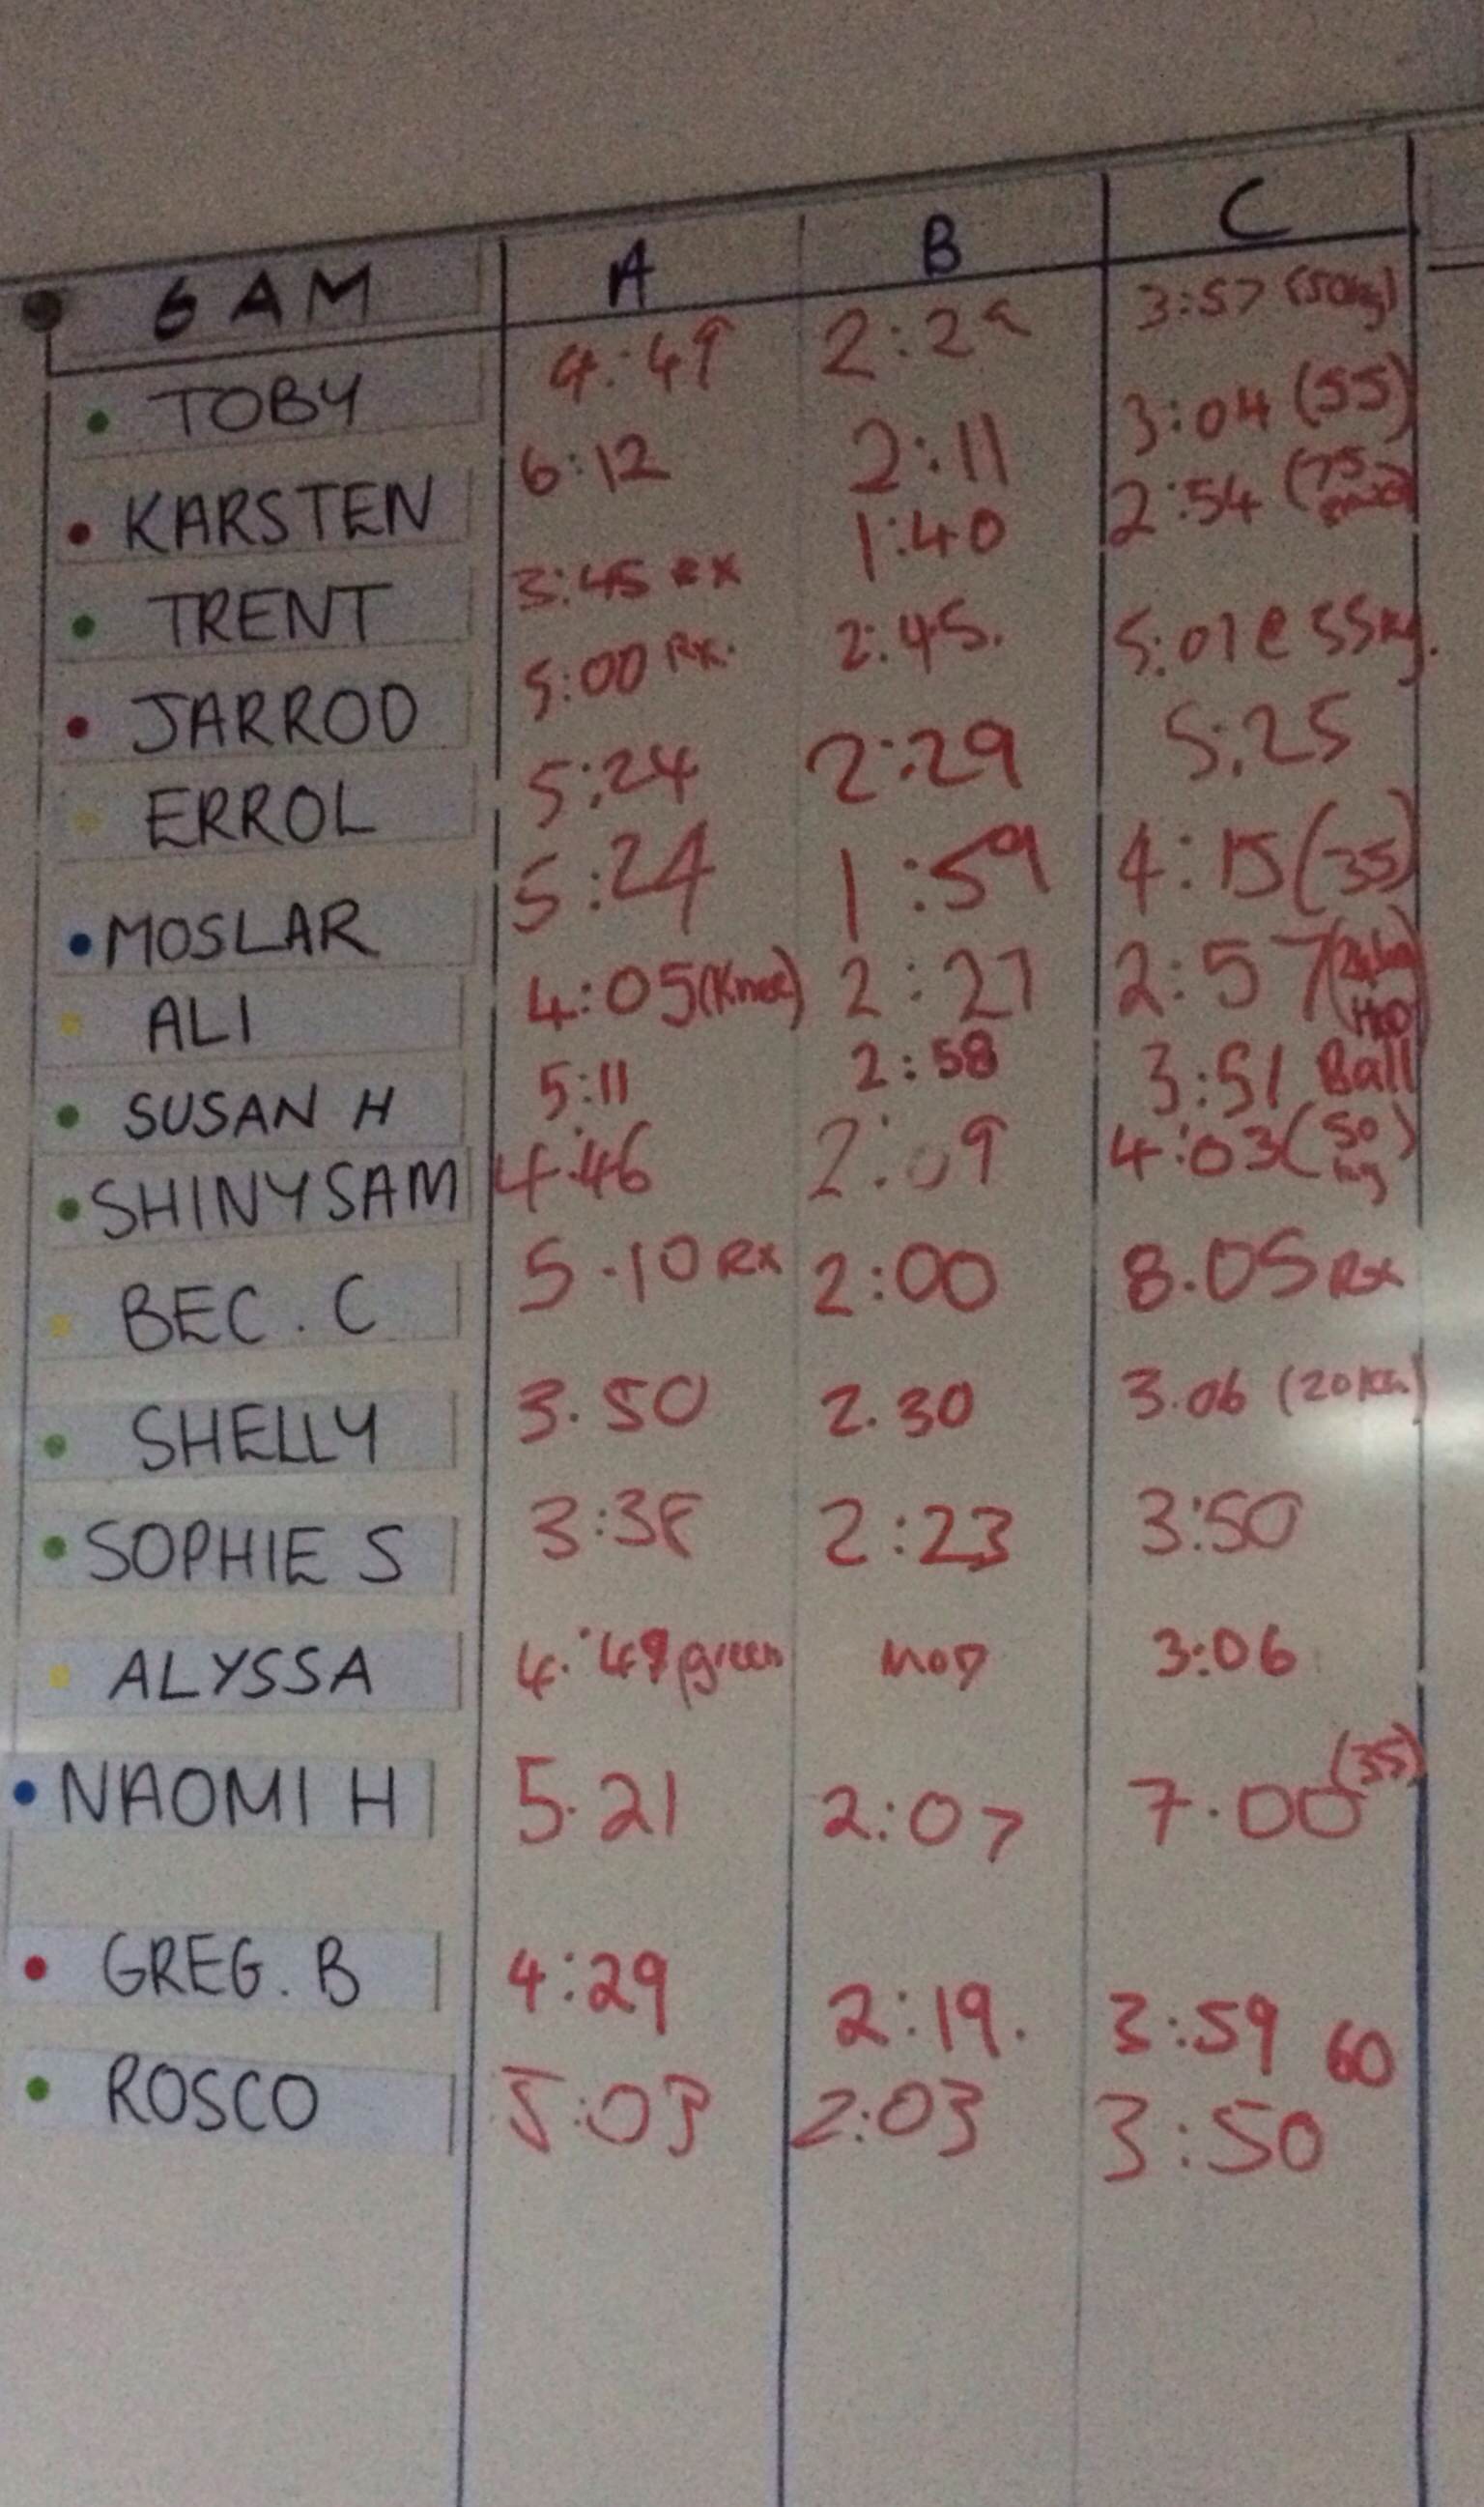 6 AM A B C
TOBY 4:49 2:29 3:57 (50kg)
KARSTEN 6:12 2:11 3:04 (55)
TRENT 3:45 RX 1:40 2:54 (75
JARROD 5:00 Rx. 2:45. 5:01 @ 55kg.
ERROL 5:24 2:29 5:25
MOSLAR 5:24 1:59 4:15 (35)
ALI 4:05 (Knee) 2:27 2:57
SUSAN H 5:11 2:58 3:51 Ball
SHINY SAM 4:46 2:09 4:03 (50 kg)
BEC. C 5.10 Rx 2:00 8.05 Rx
SHELLY 3.50 2.30 3.06
SOPHIE S 3:38 2:23 3:50
ALYSSA 4:49 green 3:06
NAOMI H 5.21 2:07 7.00 (35)
GREG. B 4:29 2:19. 3:59 60
ROSCO 5:03 2:03 3:50